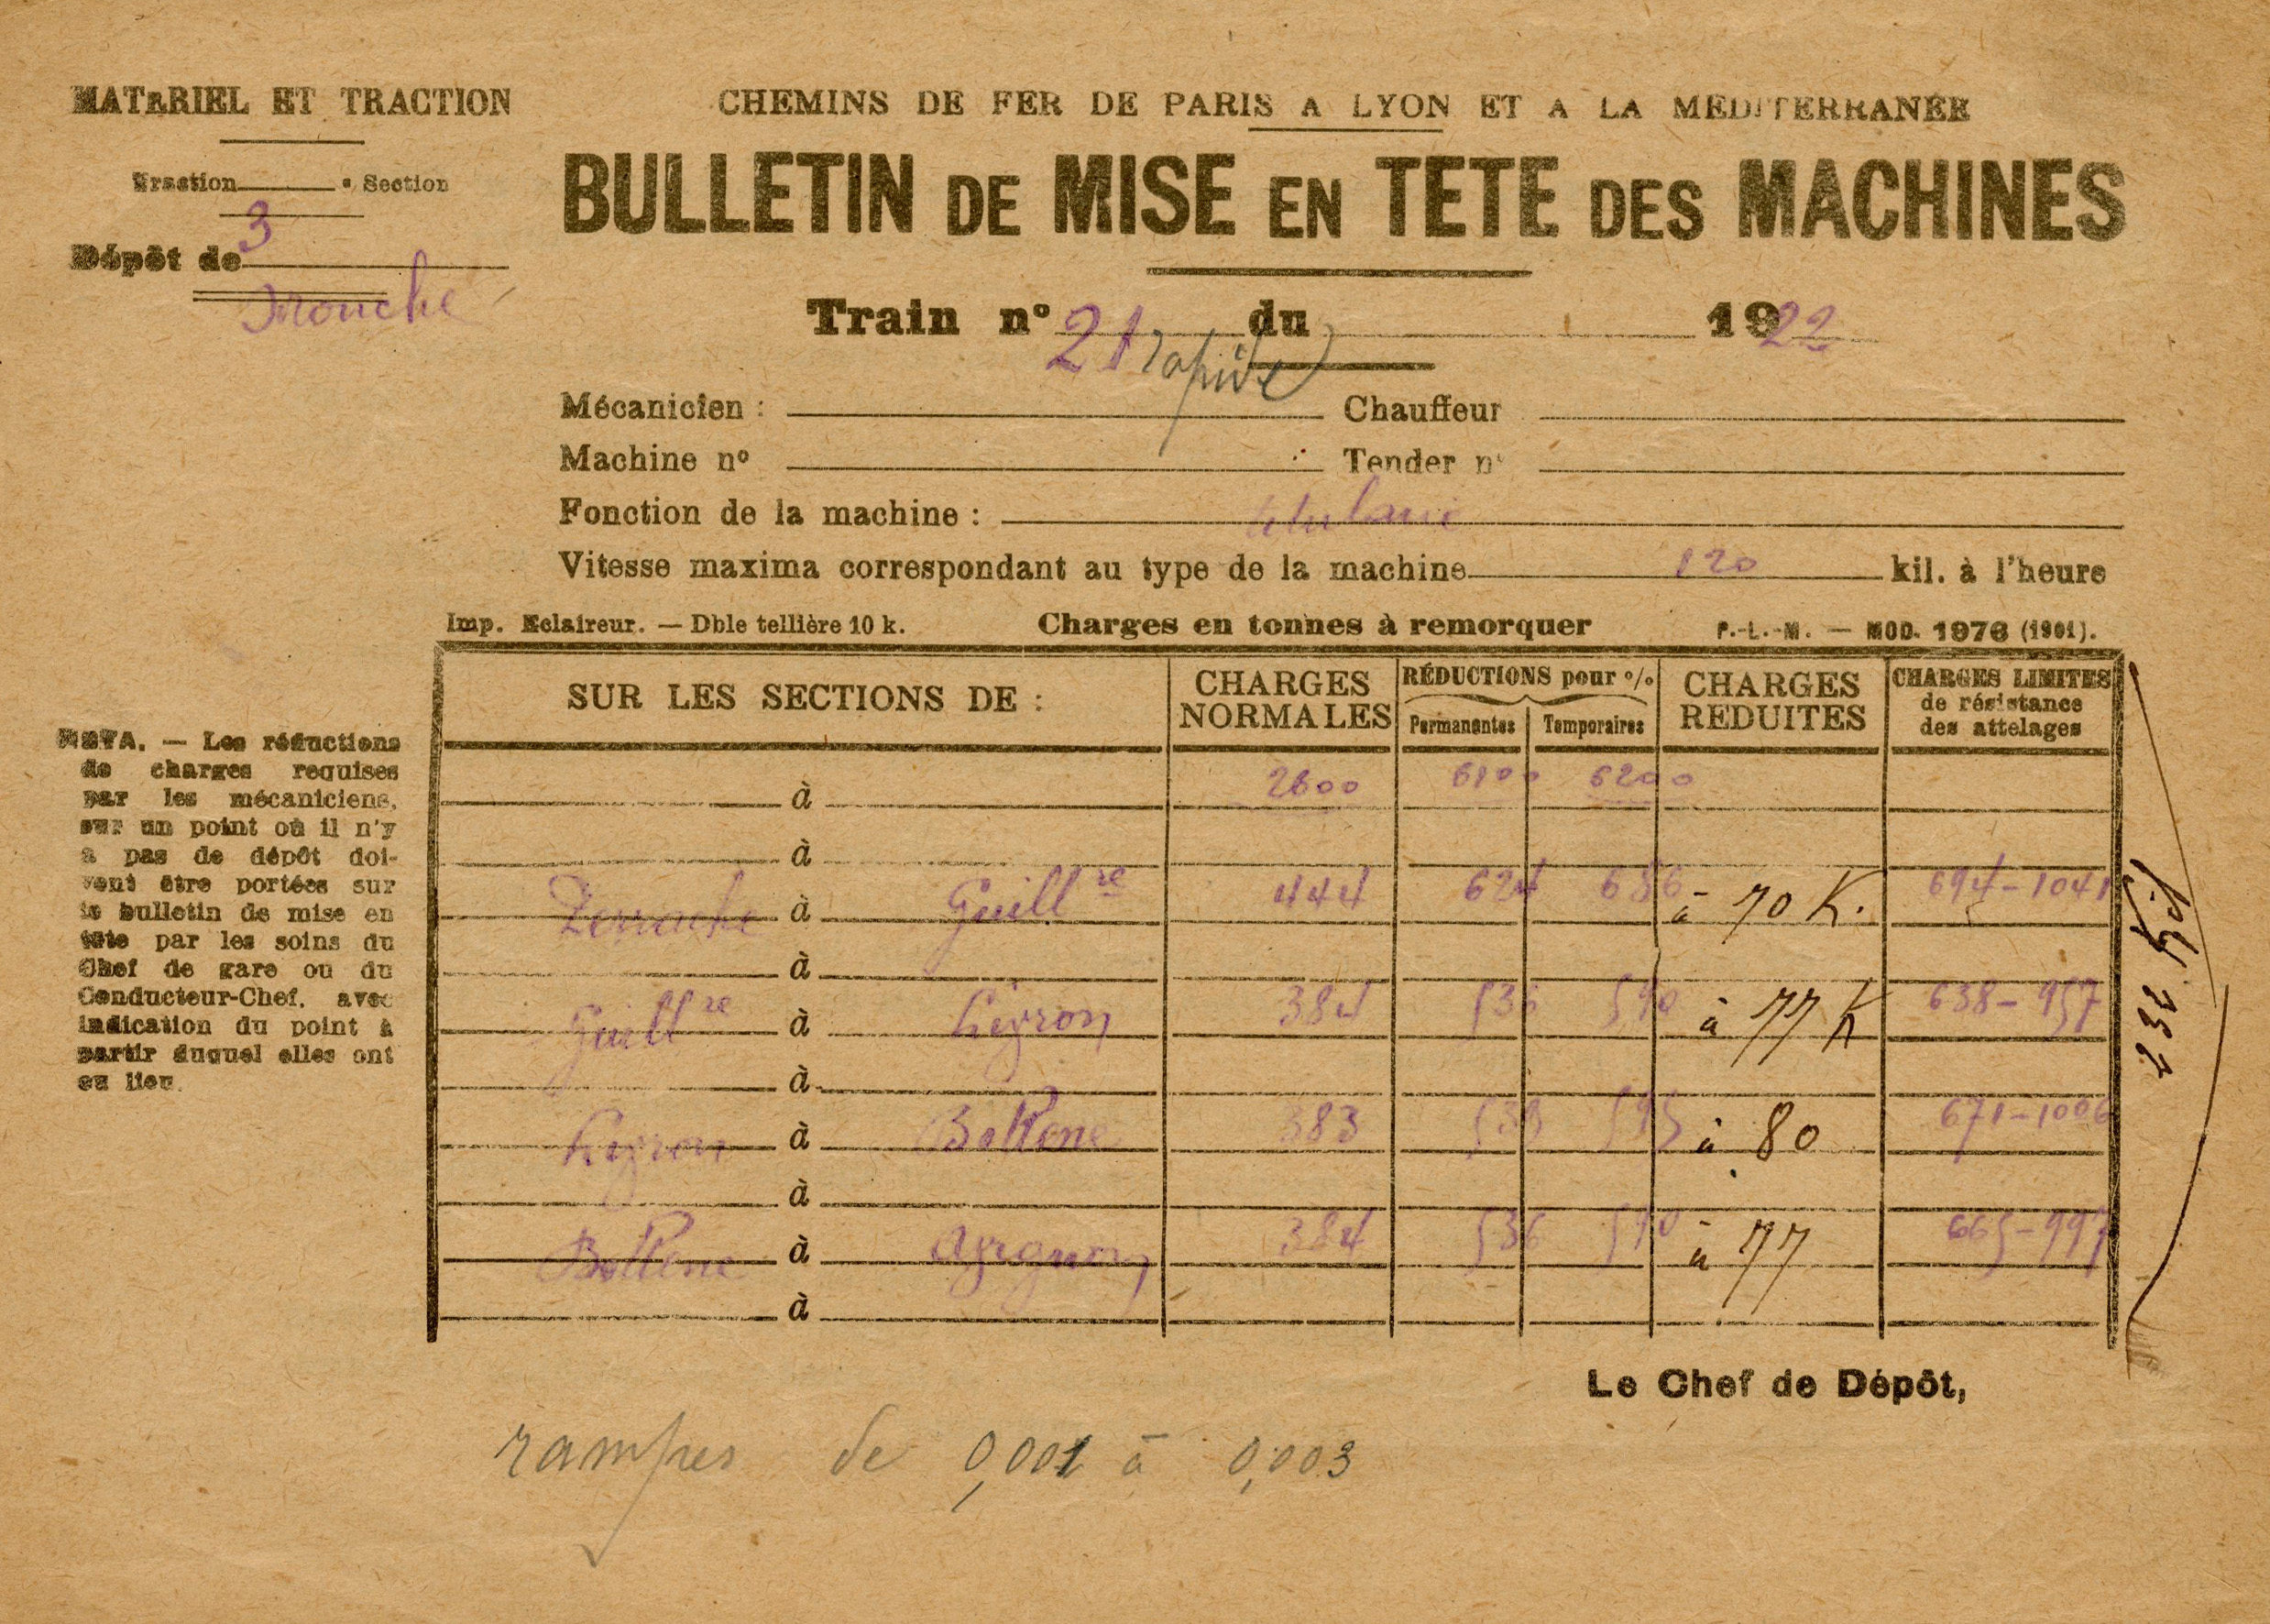 MATÉRIEL ET TRACTION
Traction ____ e Section
3
Dépôt de
Mouche
CHEMINS DE FER DE PARIS A LYON ET A LA MEDITERRANÉE
BULLETIN DE MISE EN TETE DES MACHINES
Train nº 21 rapide du 1922
Mécanicien : Chauffeur
Machine nº Tender nº
Fonction de la machine : titulaire
Vitesse maxima correspondant au type de la machine 120 kil. à l'heure
Imp. Eclaireur. — Dble tellière 10 k. Charges en tonnes à remorquer P.-L.-M. — MOD. 1976 (1901).
SUR LES SECTIONS DE : CHARGES NORMALES RÉDUCTIONS pour % Permanentes Temporaires CHARGES REDUITES CHARGES LIMITES de résistance des attelages
à 2600 6100 6200
à
à Guill re 444 624 686 à 70 K. 694-1041
à
Guill re à Livron 384 536 590 à 77 K 638-957
à
Livron à Bollène 383 539 593 à 80 671-1006
à
Bollène à Avignon 384 536 590 à 77 665-997
à
232 Kil
NOTA. — Les réductions
de charges requises
par les mécaniciens,
sur un point où il n'y
a pas de dépôt doi-
vent être portées sur
le bulletin de mise en
tête par les soins du
Chef de gare ou du
Conducteur-Chef, avec
indication du point à
partir duquel elles ont
eu lieu.
Le Chef de Dépôt,
rampes de 0,001 à 0,003